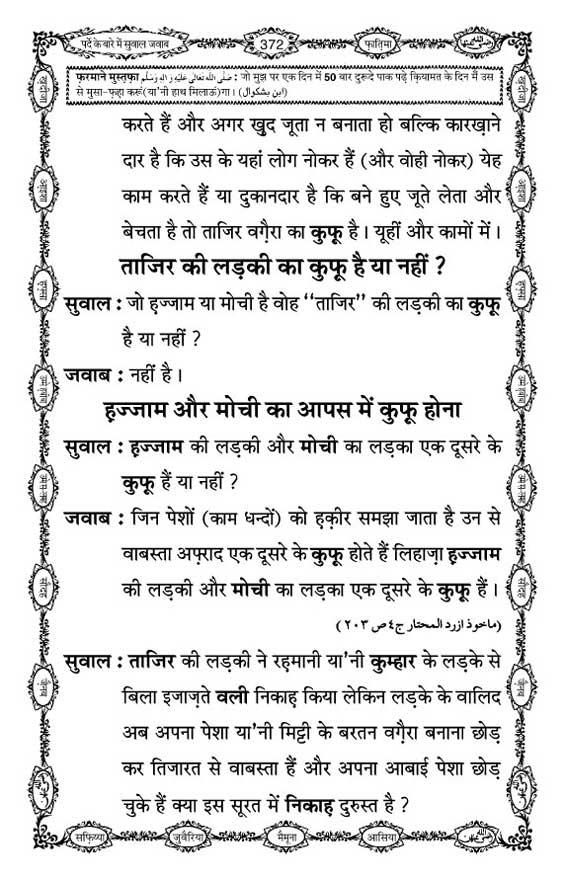 पर्दे के बारे में सुवाल जवाब 372 फ़ातिमा
फ़रमाने मुस्तफ़ा صَلَّى اللّٰهُ تَعَالٰى عَلَيْهِ وَاٰلِهٖ وَسَلَّم : जो मुझ पर एक दिन में 50 बार दुरूदे पाक पढ़े क़ियामत के दिन मैं उस
से मुसा-फ़हा करूं(या'नी हाथ मिलाऊं)गा । (ابن بشکوال)
करते हैं और अगर ख़ुद जूता न बनाता हो बल्कि कारख़ाने
दार है कि उस के यहां लोग नोकर हैं (और वोही नोकर) येह
काम करते हैं या दुकानदार है कि बने हुए जूते लेता और
बेचता है तो ताजिर वग़ैरा का कुफ़ू है । यूहीं और कामों में ।
ताजिर की लड़की का कुफ़ू है या नहीं ?
सुवाल : जो हज्जाम या मोची है वोह ‘‘ताजिर’’ की लड़की का कुफ़ू
है या नहीं ?
जवाब : नहीं है ।
हज्जाम और मोची का आपस में कुफ़ू होना
सुवाल : हज्जाम की लड़की और मोची का लड़का एक दूसरे के
कुफ़ू हैं या नहीं ?
जवाब : जिन पेशों (काम धन्दों) को हक़ीर समझा जाता है उन से
वाबस्ता अफ़राद एक दूसरे के कुफ़ू होते हैं लिहाज़ा हज्जाम
की लड़की और मोची का लड़का एक दूसरे के कुफ़ू हैं ।
(ماخوذ از رد المحتار ج٤ ص ٢٠٣)
सुवाल : ताजिर की लड़की ने रहमानी या'नी कुम्हार के लड़के से
बिला इजाज़ते वली निकाह किया लेकिन लड़के के वालिद
अब अपना पेशा या'नी मिट्टी के बरतन वग़ैरा बनाना छोड़
कर तिजारत से वाबस्ता हैं और अपना आबाई पेशा छोड़
चुके हैं क्या इस सूरत में निकाह दुरुस्त है ?
सफ़िय्या जुवैरिया मैमूना आसिया